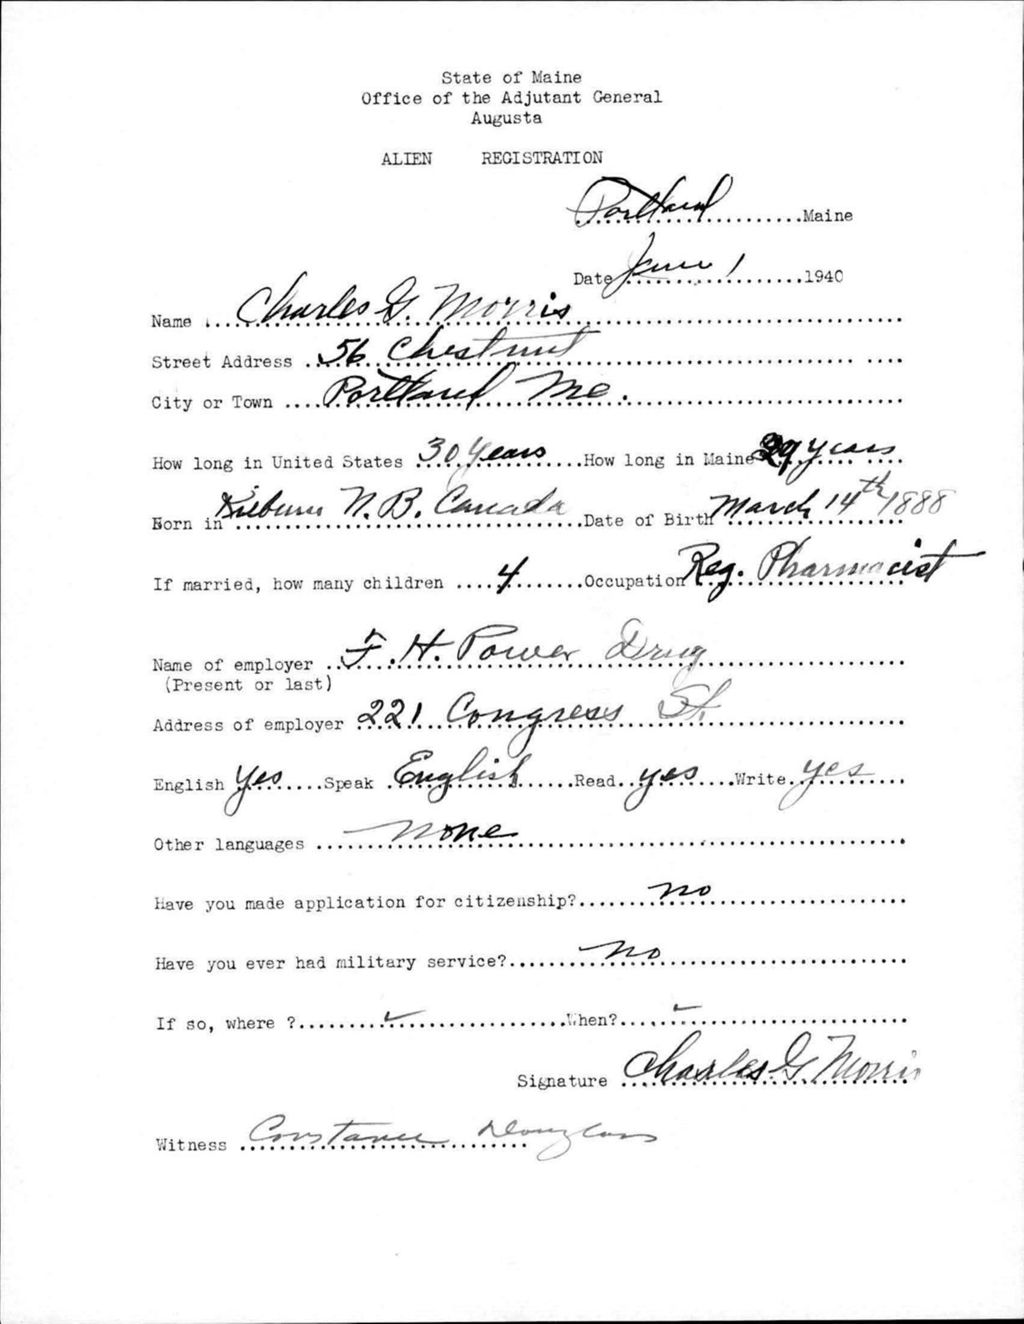 State of Maine
Office of the Adjutant General
Augusta
ALIEN REGISTRATION
Portland..........Maine
Date June 1..........1940
Name ....Charles G. Morris
Street Address ..56 Chestnut
City or Town ....Portland Me.
How long in United States 30 Years......How long in Maine 29 years
Born in Kilburn N.B. Canada......Date of Birth March 14th 1888
If married, how many children ....4.......Occupation Reg. Pharmacist
Name of employer ..F. H. Power Drug
(Present or last)
Address of employer 221 Congress St.
English Yes.....Speak .English......Read..yes.....Write..yes
Other languages ......none
Have you made application for citizenship?.......no
Have you ever had military service?.......no
If so, where ?........✓..................When?....✓
Signature Charles G Morris
Witness Constance Douglass